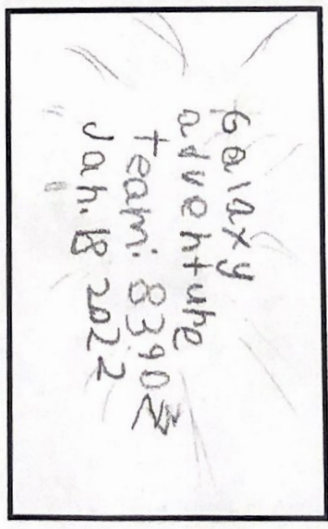 Galaxy
adventure
team: 8390Z
Jan. 18 2022